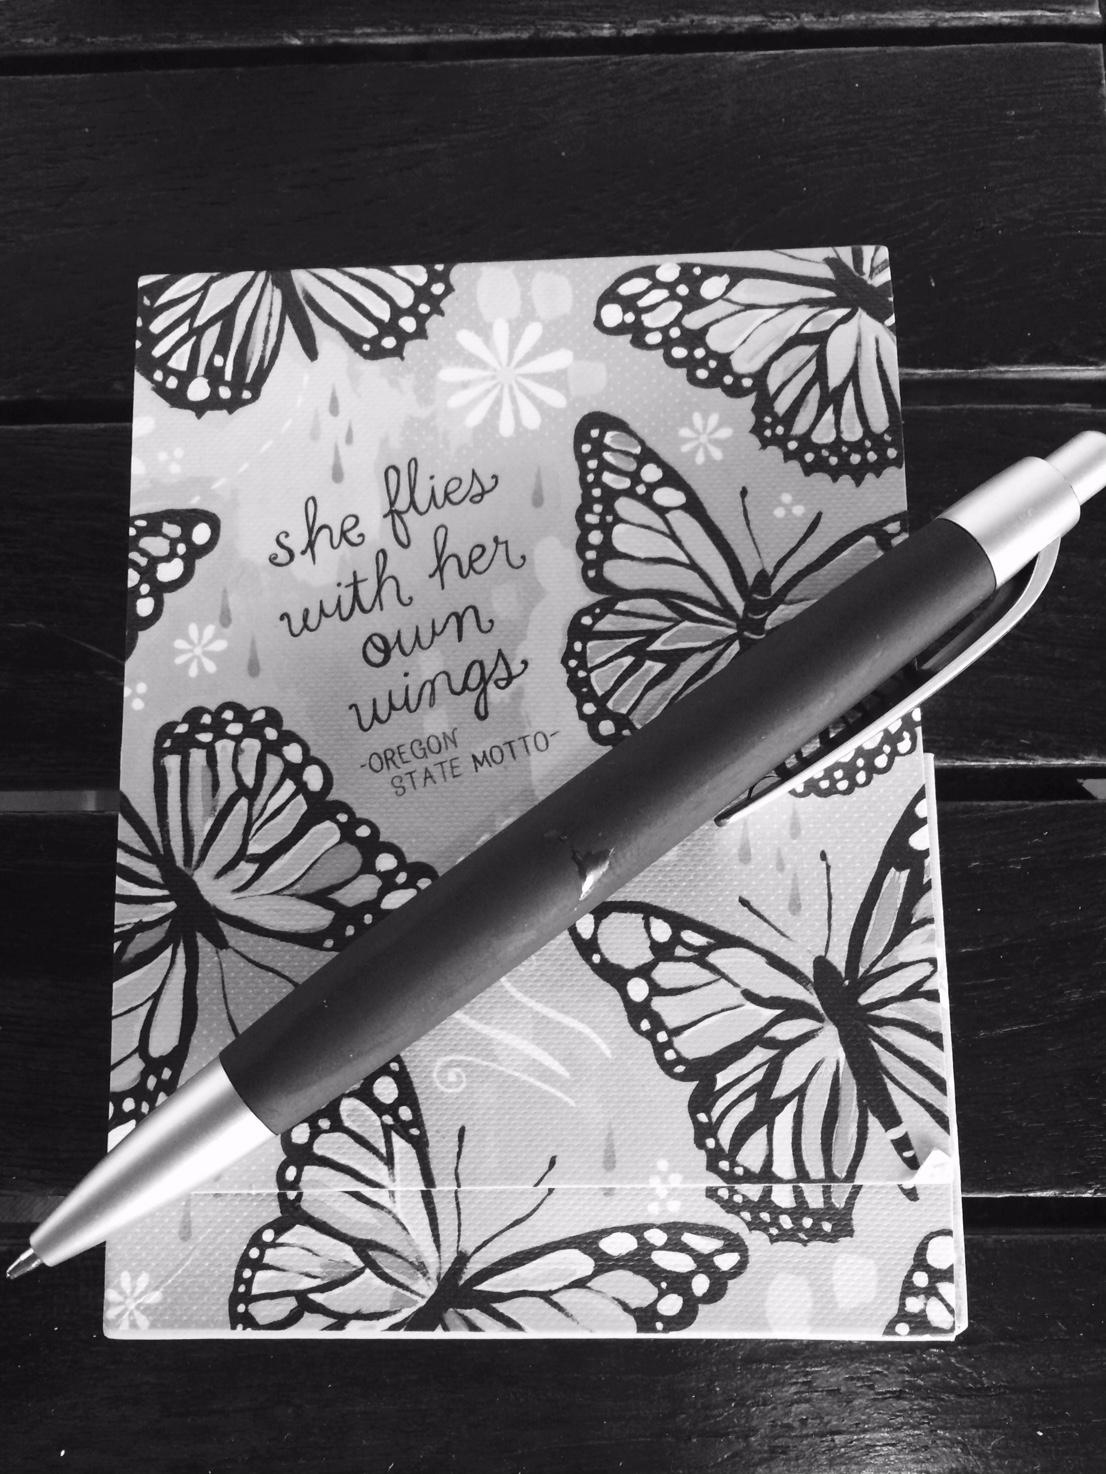 she flies
with her
own
wings
-OREGON
STATE MOTTO-